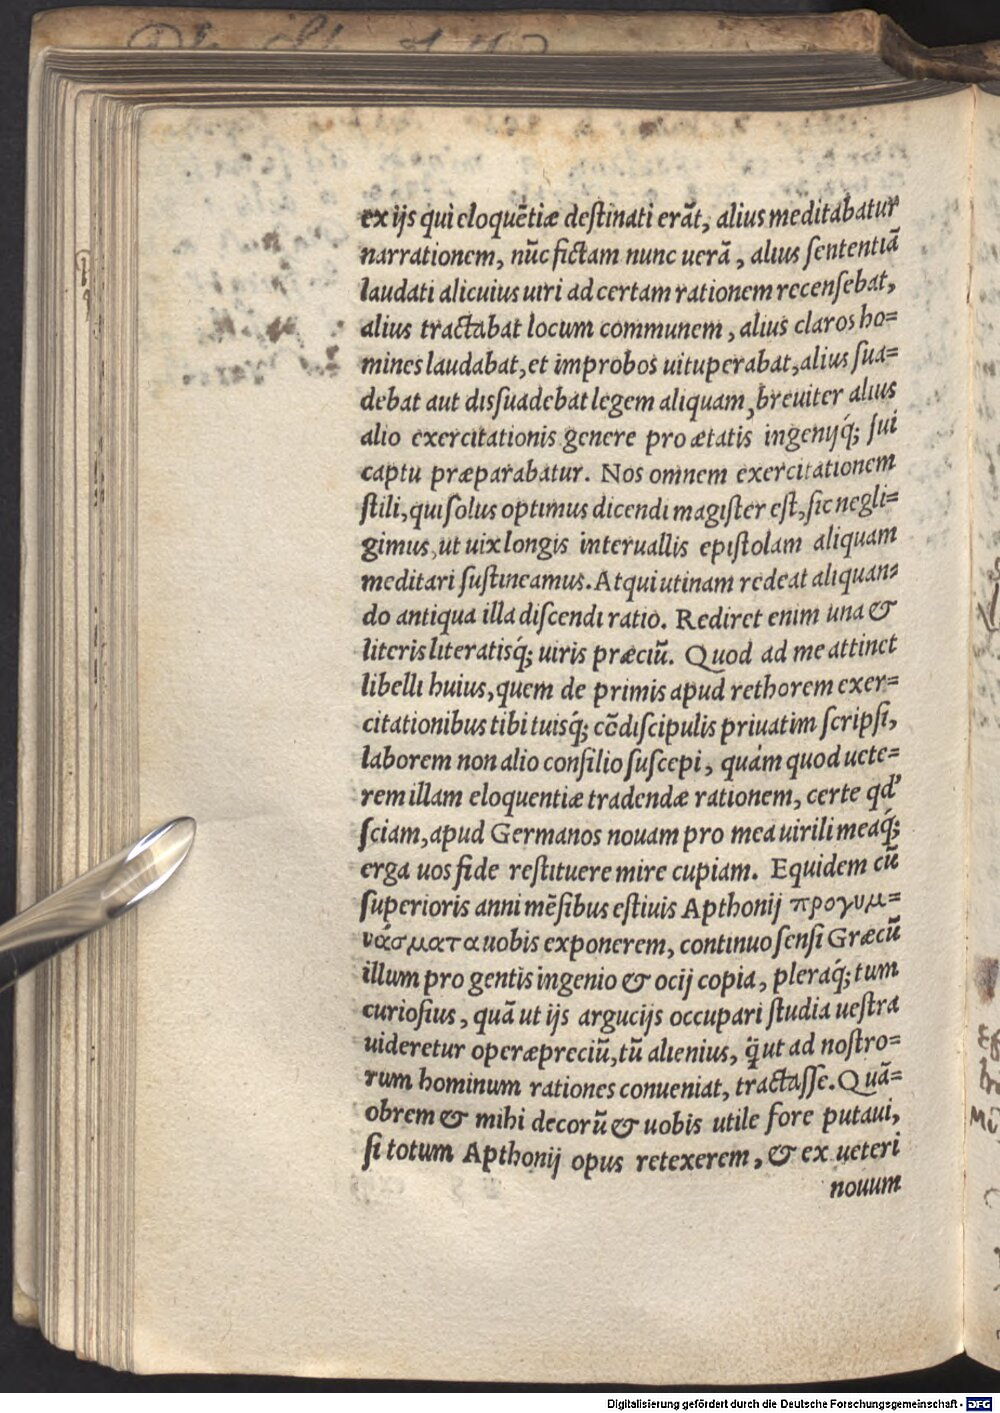 ex ijs qui eloquētiæ destinati erāt, alius meditabatur
narrationem, nūc fictam nunc uerā, alius sententiā
laudati alicuius uiri ad certam rationem recensebat,
alius tractabat locum communem, alius claros ho=
mines laudabat, et improbos uituperabat, alius sua=
debat aut dissuadebat legem aliquam, breuiter alius
alio exercitationis genere pro ætatis ingenijq́; sui
captu præparabatur. Nos omnem exercitationem
stili, qui solus optimus dicendi magister est, sic negli=
gimus, ut uix longis interuallis epistolam aliquam
meditari sustineamus. Atqui utinam redeat aliquan=
do antiqua illa discendi ratio. Rediret enim una &
literis literatisq́; uiris præciū. Quod ad me attinet
libelli huius, quem de primis apud rethorem exer=
citationibus tibi tuisq́; cōdiscipulis priuatim scripsi,
laborem non alio consilio suscepi, quám quod uete=
rem illam eloquentiæ tradendæ rationem, certe qd'
sciam, apud Germanos nouam pro mea uirili meaq́;
erga uos fide restituere mire cupiam. Equidem cū
superioris anni mēsibus estiuis Apthonij προγυμ=
νάσματα uobis exponerem, continuo sensi Græcū
illum pro gentis ingenio & ocij copia, pleraq́; tum
curiosius, quā ut ijs argucijs occupari studia uestra
uideretur operæpreciū, tū alienius, q̈ ut ad nostro=
rum hominum rationes conueniat, tractasse. Quā=
obrem & mihi decorū & uobis utile fore putaui,
si totum Apthonij opus retexerem, & ex ueteri
nouum
Digitalisierung gefördert durch die Deutsche Forschungsgemeinschaft - DFG